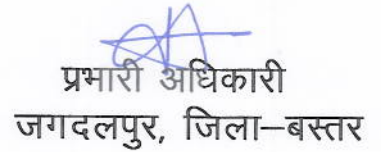 प्रभारी अधिकारी
जगदलपुर, जिला–बस्तर